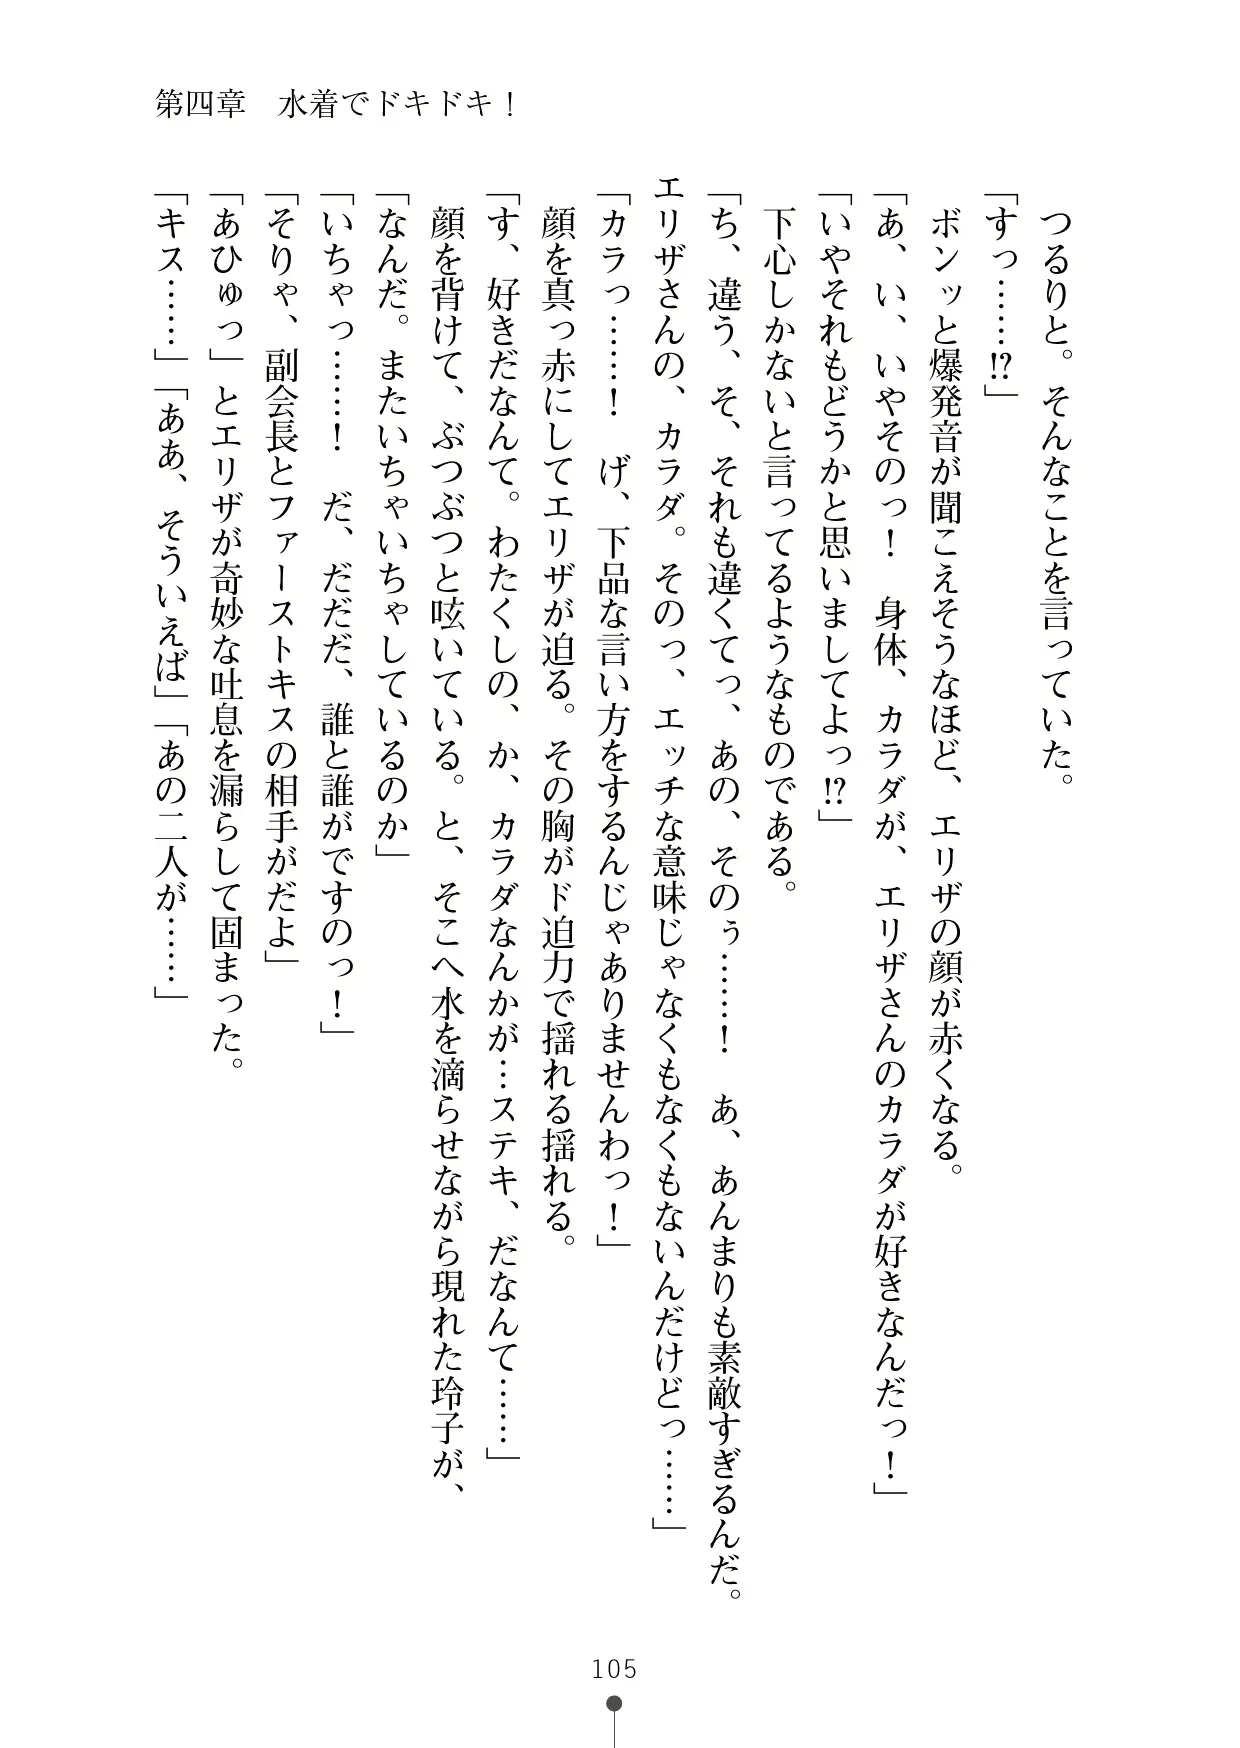 第四章　水着でドキドキ！
　つるりと。そんなことを言っていた。
「すっ……!?」
　ボンッと爆発音が聞こえそうなほど、エリザの顔が赤くなる。
「あ、い、いやそのっ！　身体、カラダが、エリザさんのカラダが好きなんだっ！」
「いやそれもどうかと思いましてよっ!?」
　下心しかないと言ってるようなものである。
「ち、違う、そ、それも違くてっ、あの、そのぅ……！　あ、あんまりも素敵すぎるんだ。
エリザさんの、カラダ。そのっ、エッチな意味じゃなくもなくもないんだけどっ……」
「カラっ……！　げ、下品な言い方をするんじゃありませんわっ！」
　顔を真っ赤にしてエリザが迫る。その胸がド迫力で揺れる揺れる。
「す、好きだなんて。わたくしの、か、カラダなんかが…ステキ、だなんて……」
　顔を背けて、ぶつぶつと呟いている。と、そこへ水を滴らせながら現れた玲子が、
「なんだ。またいちゃいちゃしているのか」
「いちゃっ……！　だ、だだだ、誰と誰がですのっ！」
「そりゃ、副会長とファーストキスの相手がだよ」
「あひゅっ」とエリザが奇妙な吐息を漏らして固まった。
「キス……」「ああ、そういえば」「あの二人が……」
105